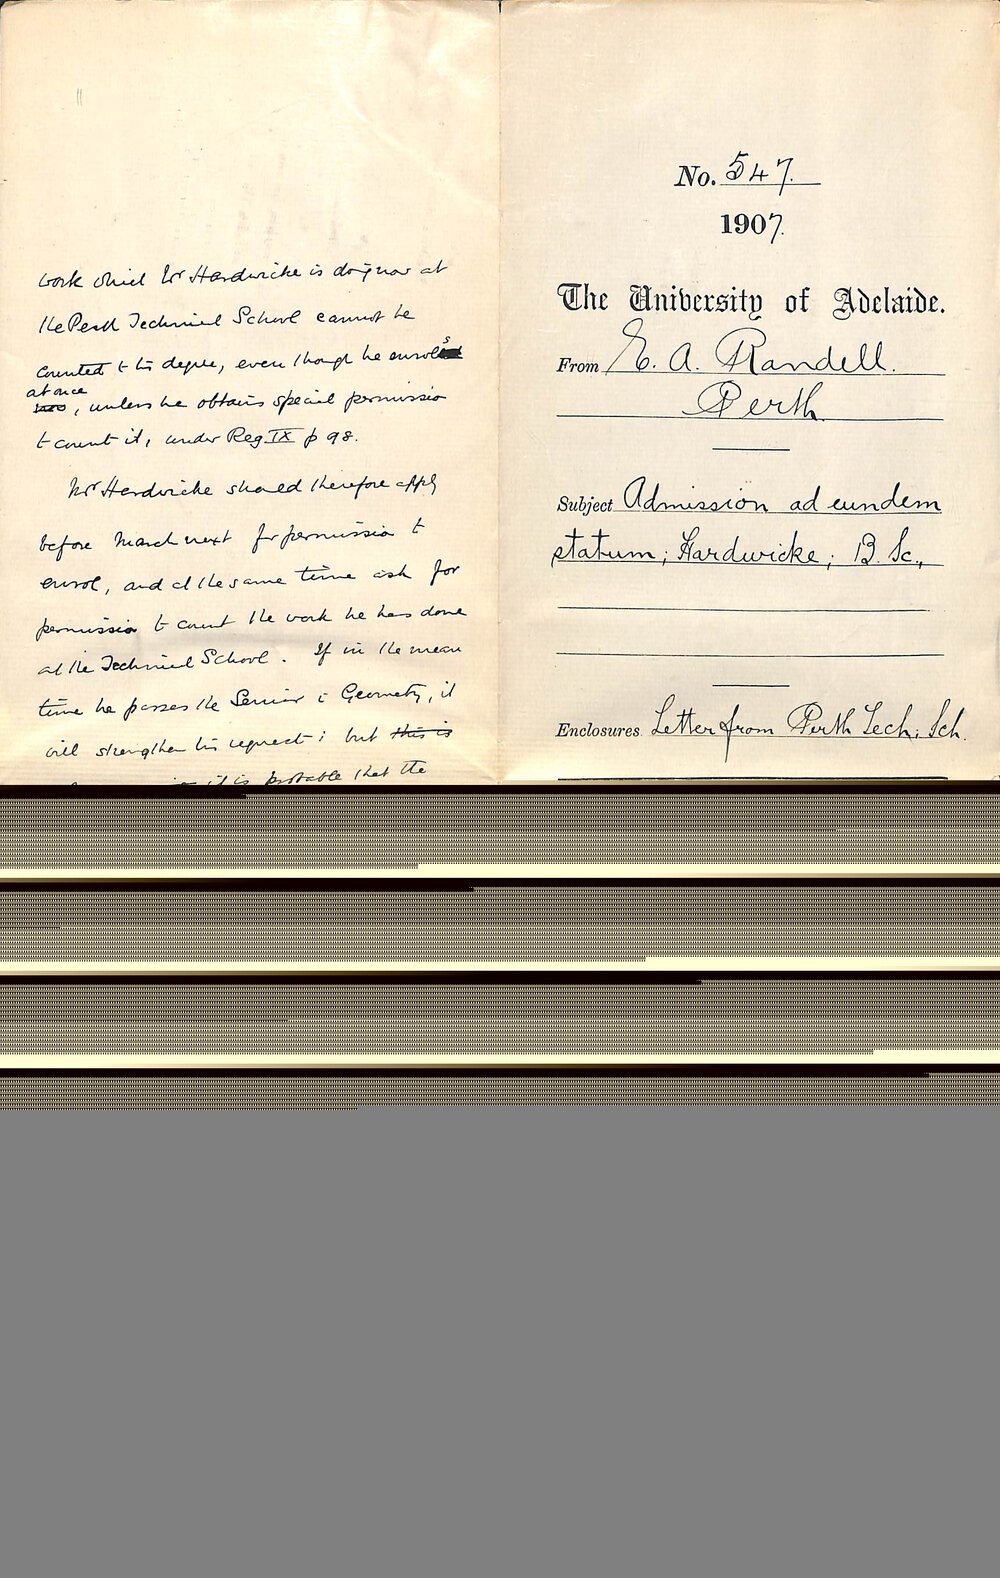 work which Mr Hardwicke is doing now at
the Perth Technical School cannot be
counted to his degree, even though he enrols
at once
now, unless he obtains special permission
to count it, under Reg. IX p 98.
Mr Hardwicke should therefore apply
before March next for permission to
enrol, and at the same time ask for
permission to count the work he has done
at the Technical School. If in the mean
time he passes the Senior in Geometry, it
will strengthen his request; but this is
it is probable that the
No. 547.
1907.
The University of Adelaide.
From E. A. Randell.
Perth.
Subject Admission ad eundem
statum; Hardwicke; B. Sc.,
Enclosures. Letter from Perth Tech. Sch.